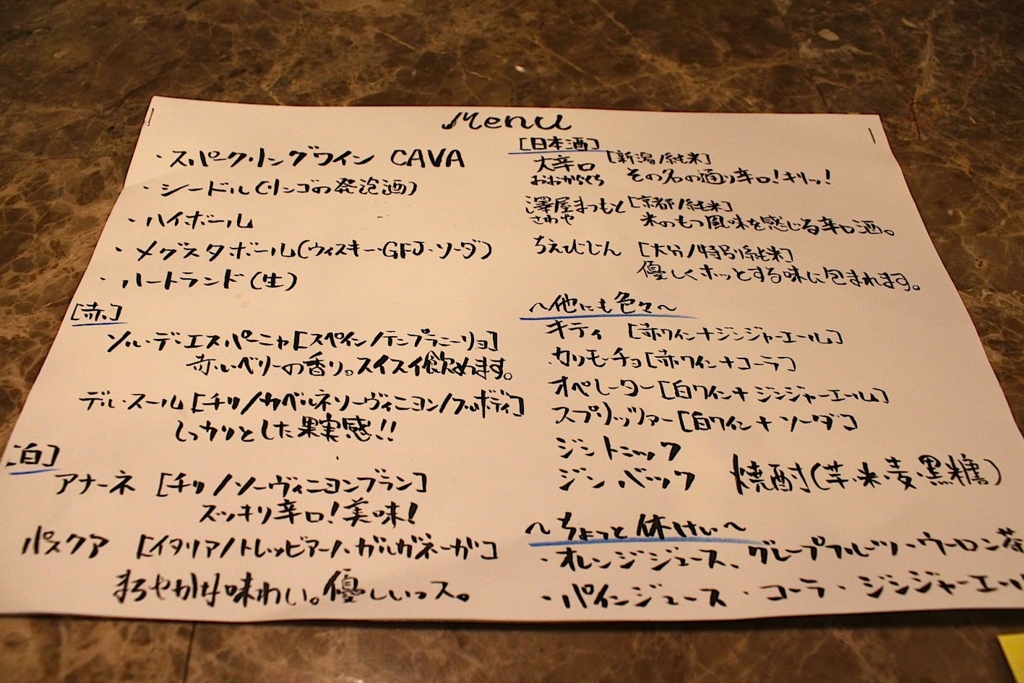 Menu
・スパークリングワイン CAVA
・シードル(リンゴの発泡酒)
・ハイボール
・メグスタボール(ウィスキー・GFJ・ソーダ)
・ハートランド(生)
[赤]
ソル・デ・エスパーニャ[スペイン/テンプラニーリョ]
赤いベリーの香り。スイスイ飲めます。
デル・スール[チリ/カベルネソーヴィニヨン/フルボディ]
しっかりとした果実感!!
[白]
アナーネ[チリ/ソーヴィニヨンブラン]
スッキリ辛口!美味!
パスクア[イタリア/トレッビアーノ・ガルガネーガ]
まろやかな味わい。優しいっス。
[日本酒]
大辛口[新潟/純米]
おおからくち その名の通り辛口!キリッ!
澤屋まつもと[京都/純米]
さわや 米のもつ風味を感じる辛口酒。
ちえびじん[大分/特別純米]
優しくホッとする味に包まれます。
〜他にも色々〜
キティ[赤ワイン+ジンジャーエール]
カリモーチョ[赤ワイン+コーラ]
オペレーター[白ワイン+ジンジャーエール]
スプリッツァー[白ワイン+ソーダ]
ジントニック
ジンバック 焼酎(芋・米・麦・黒糖)
〜ちょっと休けい〜
・オレンジジュース、グレープフルーツ・ウーロン茶
・パインジュース・コーラ・ジンジャーエール